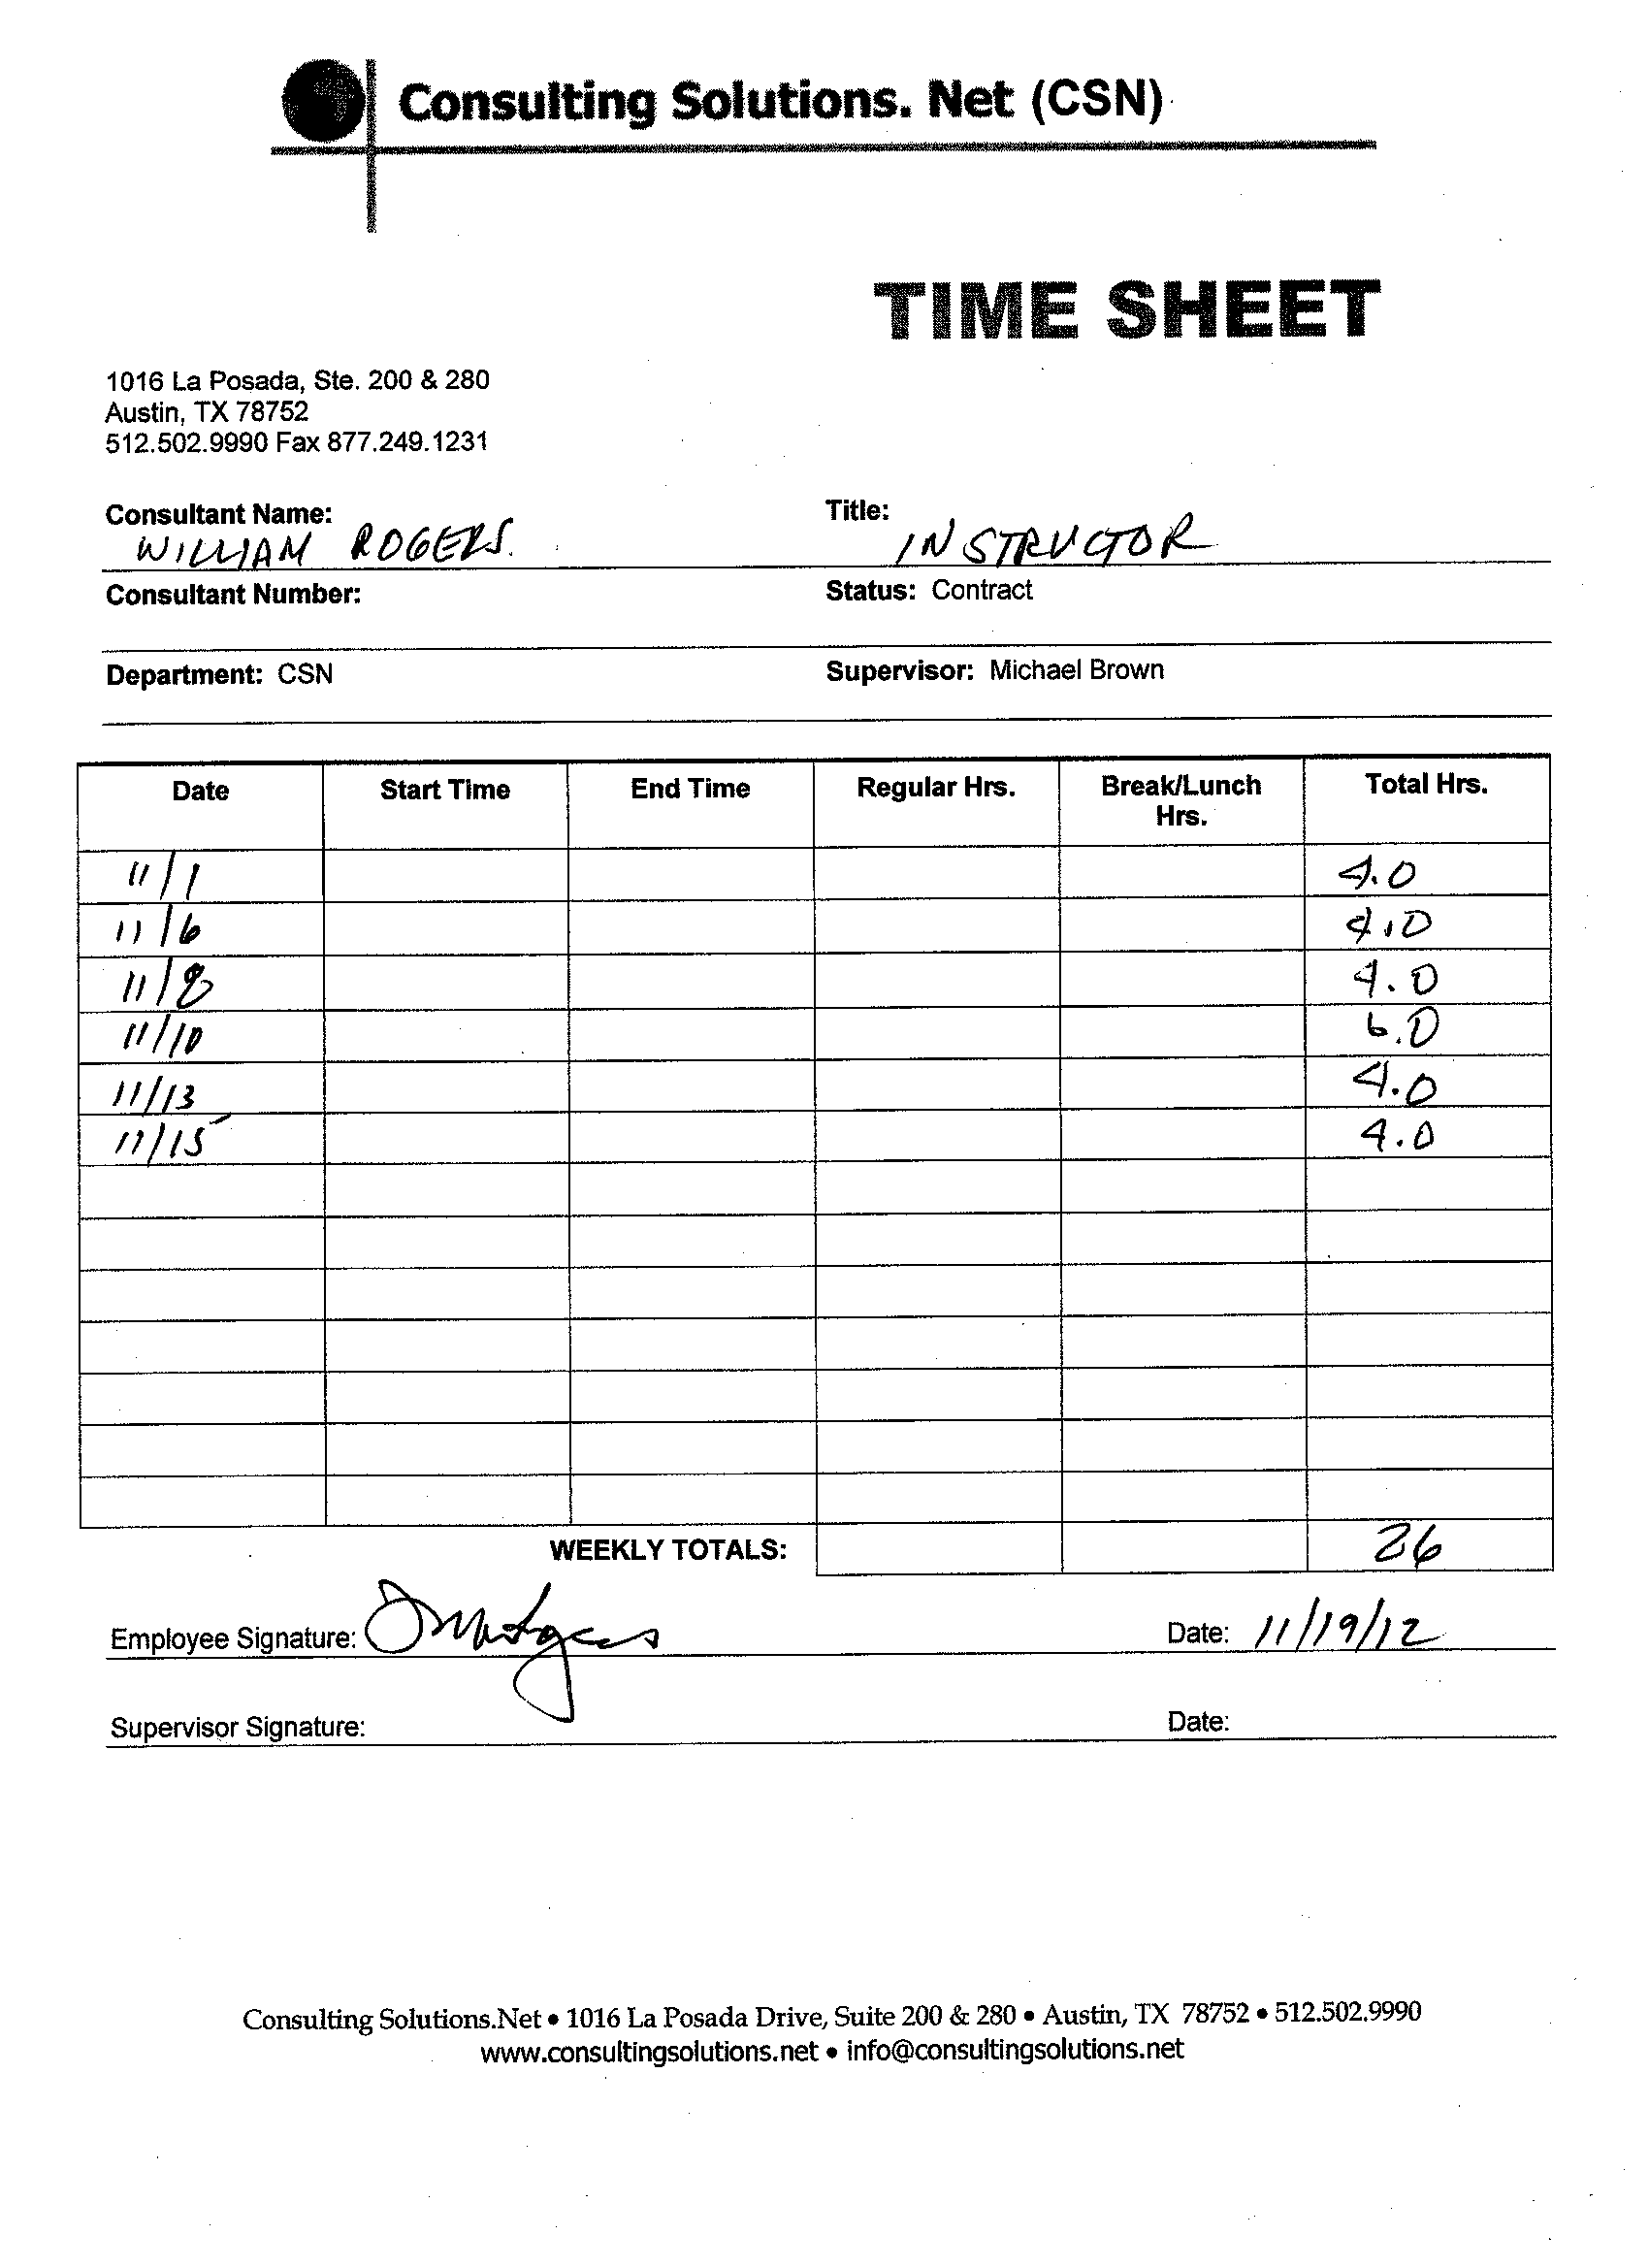 Consulting Solutions. Net (CSN)
TIME SHEET
1016 La Posada, Ste. 200 & 280
Austin, TX 78752
512.502.9990 Fax 877.249.1231
Consultant Name: Title:
WILLIAM ROGERS. INSTRUCTOR
Consultant Number: Status: Contract
Department: CSN Supervisor: Michael Brown
Date Start Time End Time Regular Hrs. Break/Lunch Total Hrs.
Hrs.
11/1 4.0
11/6 4.0
11/8 4.0
11/10 6.0
11/13 4.0
11/15 4.0
WEEKLY TOTALS: 26
Employee Signature: Date: 11/19/12
Supervisor Signature: Date:
Consulting Solutions.Net • 1016 La Posada Drive, Suite 200 & 280 • Austin, TX 78752 • 512.502.9990
www.consultingsolutions.net • info@consultingsolutions.net